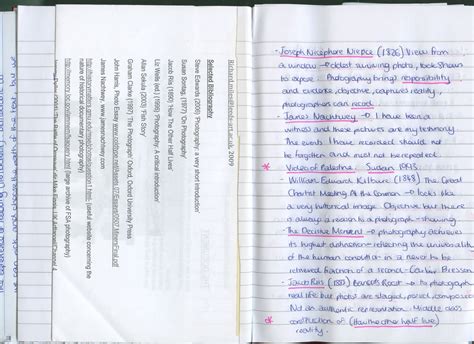 Richard.miles@leeds-art.ac.uk 2009
Selected Bibliography
Steve Edwards (2006) 'Photography: a very short introduction'
Susan Sontag, (1977) 'On Photography'
Jacob Riis (1890) 'How The Other Half Lives'
Liz Wells (ed.) (1996) 'Photography: A critical introduction'
Allan Sekula (2003) 'Fish Story'
Graham Clarke (1997) 'The Photograph', Oxford, Oxford University Press
John Harris, Photo Essay
James Nachtwey, www.jamesnachtwey.com
(useful website concerning the
nature of historical documentary photography)
(large archive of FSA
photography)
- Joseph Nicephore Niepce (1826) View from
a window → oldest surviving photo, took 8 hours
to expose. Photography brings responsibility
and evidence, objective, captures reality,
photographers can record.
- James Nachtwey → I have been a
witness and these pictures are my testimony.
The events I have recorded should not
be forgotten and must not be repeated.
Sudan 1993.
William Edward Kilburn (1848) The Great
Chartist Meeting At The Common → looks like
a very historical image. Objective but there
is always a reason to a photograph - showing
- The Decisive Moment → photography achieves
its highest distinction - reflecting the universality
of the human condition in a never to be
retrieved fraction of a second - Cartier Bresson
- Jacob Riis (1888) Bandits Roost → to photograph
real life but photos are staged, posed, composed
Not an authentic representation. Middle class
construction of (How the other half live)
reality.